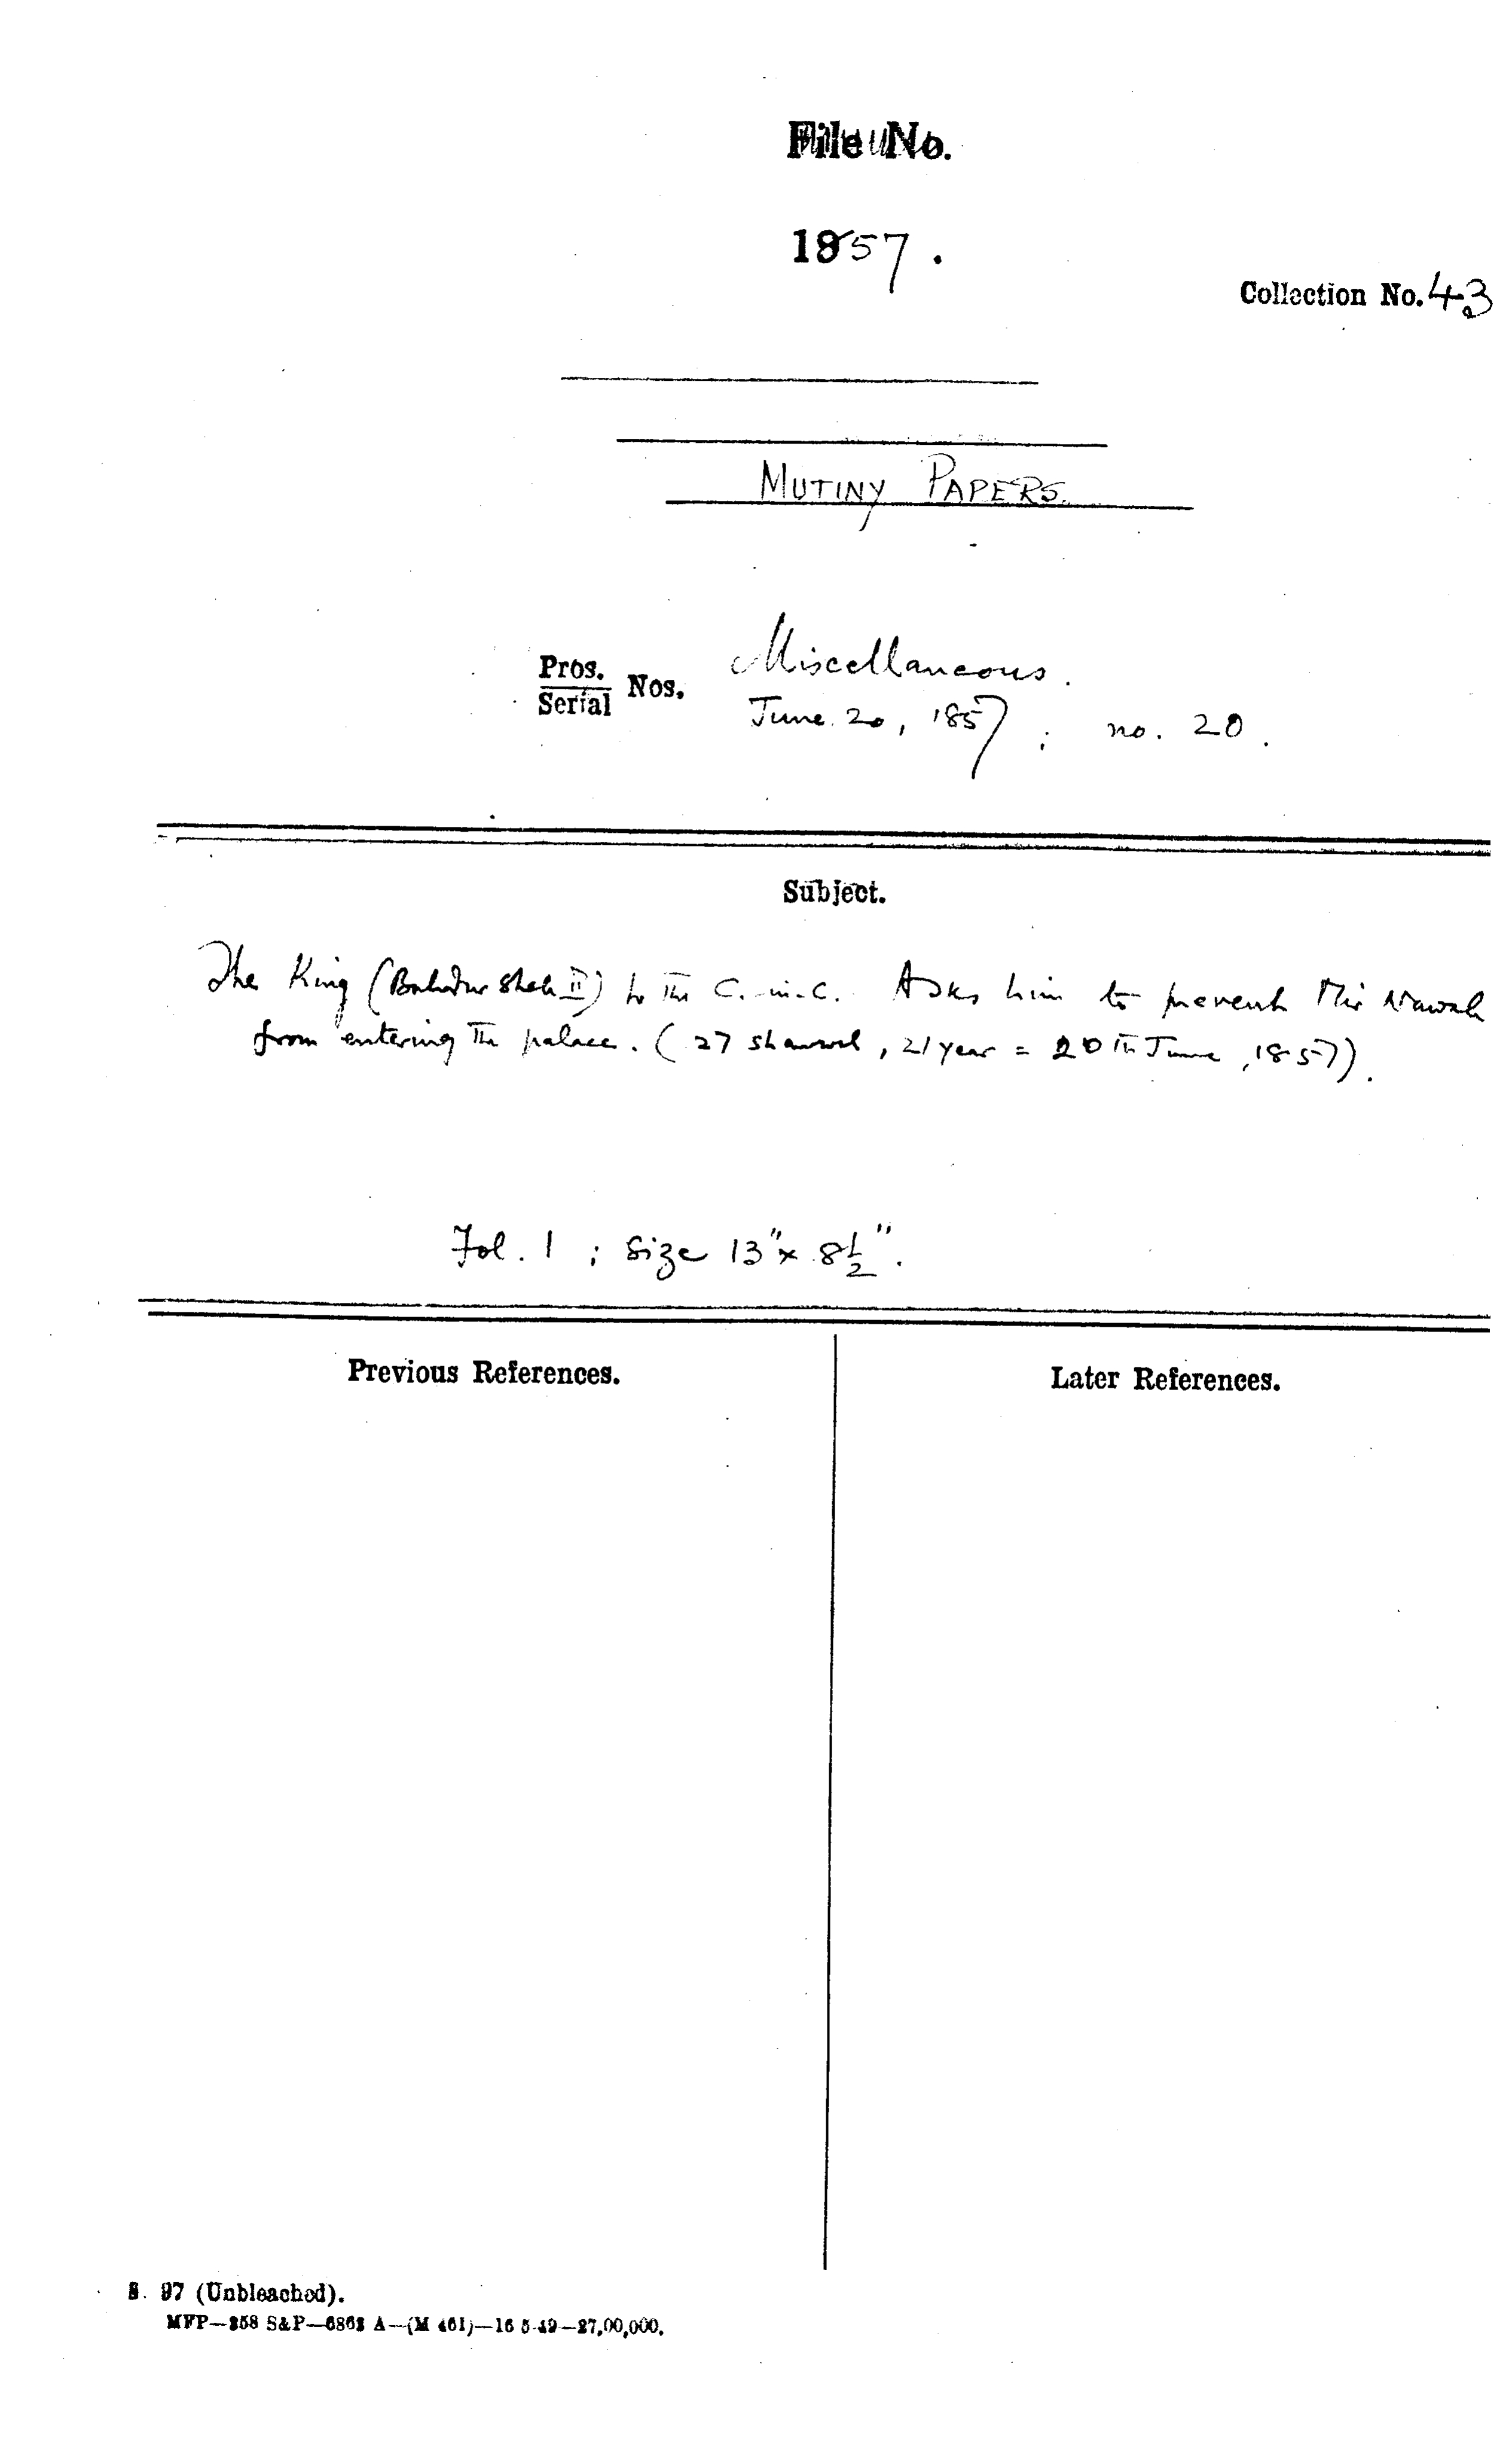 File No.
1857.
Collection No. 43
MUTINY PAPERS.
Miscellaneous.
Pros.
Serial Nos.
June 20, 1857; no. 20.
Subject.
The King (Bahadur Shah II) to the C.-in-C. Asks him to prevent Mir Nawab
from entering the palace. (27 Shawwal, 21 year = 20th June, 1857).
Fol. 1; Size 13" x 8 1/2".
Previous References.
Later References.
S. 97 (Unbleached).
MFP—358 S&P—6863 A—(M 461)—16 5 49—27,00,000.